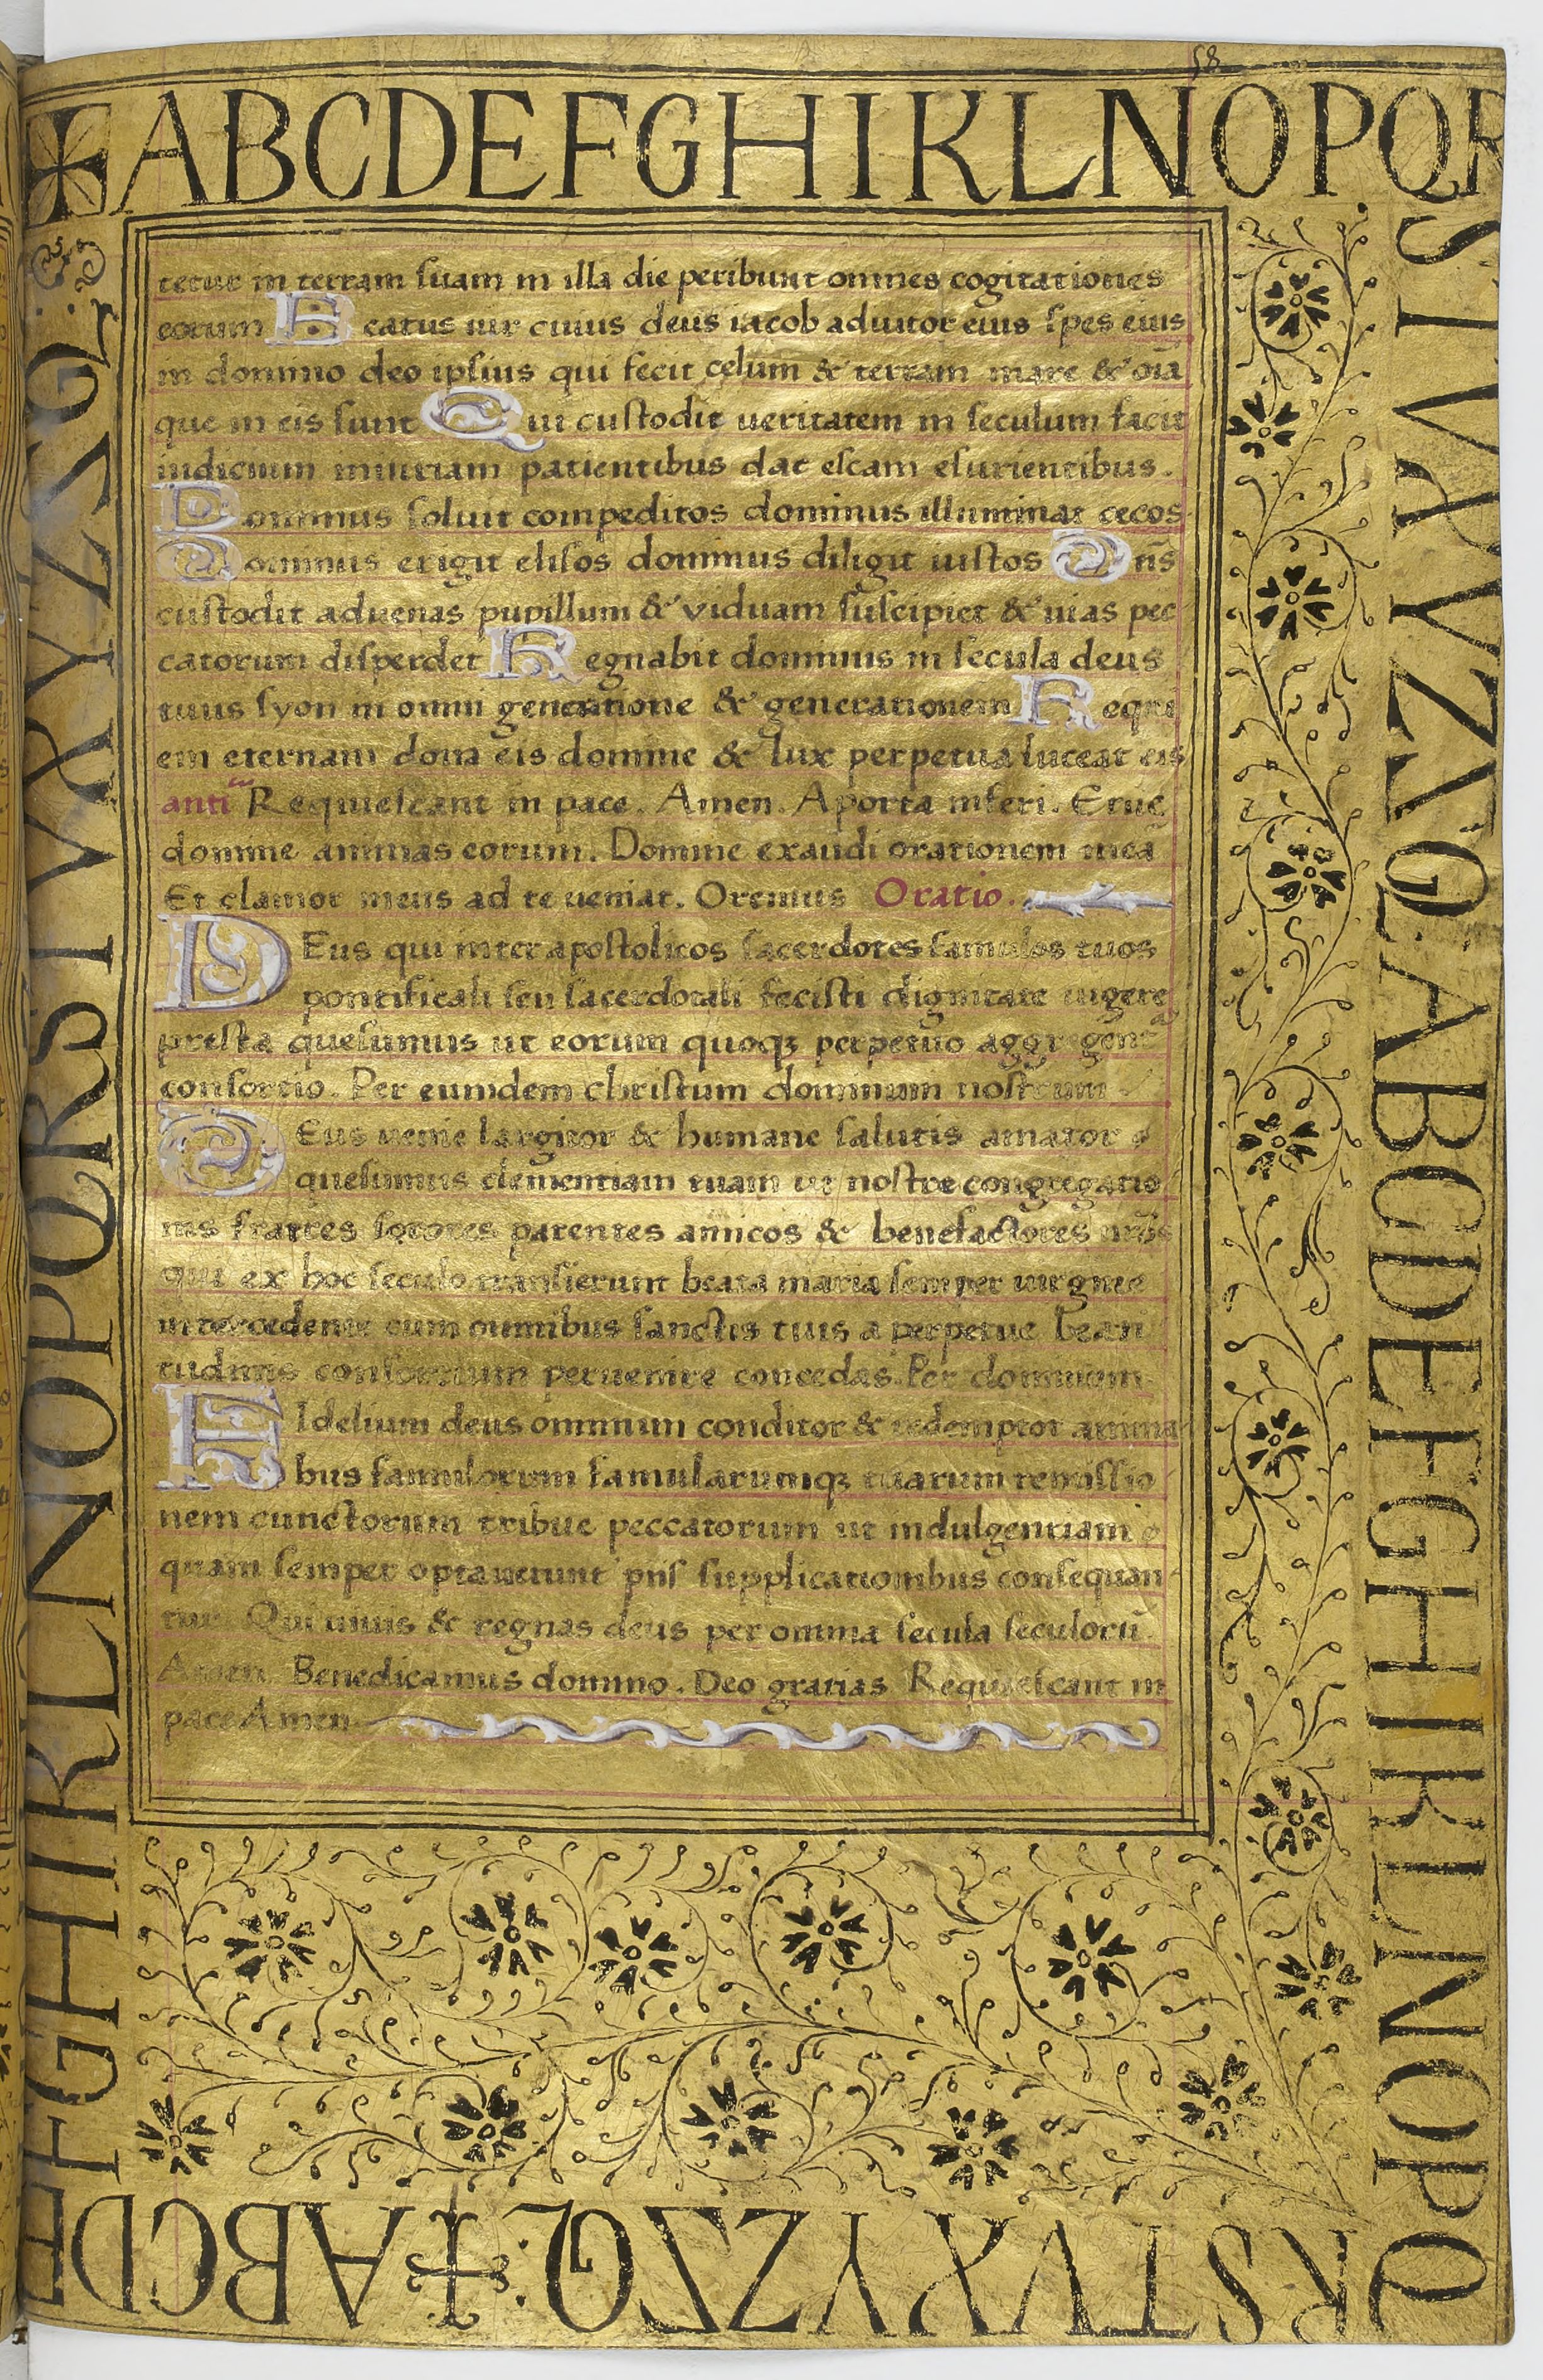 58
ABCDEFGHIKLNOPQR
STVXYZ
ABCDEFGHIKLNOPQ
RSTVXYZ
ABCDE
FGHIKLNOPQRSTVXYZ
tetur in terram suam in illa die peribunt omnes cogitationes
eorum Beatus uir cuius deus iacob adiutor eius spes eius
in domino deo ipsius qui fecit celum & terram mare & oīa
que in eis sunt Qui custodit ueritatem in seculum facit
iudicium iniuriam patientibus dat escam esurientibus.
Dominus soluit compeditos dominus illuminat cecos
Dominus erigit elisos dominus diligit iustos Dn̄s
custodit aduenas pupillum & viduam suscipiet & uias pec
catorum disperdet Regnabit dominus in secula deus
tuus syon in omni generatione & generationem Requi
em eternam dona eis domine & lux perpetua luceat eis
anti Requiescant in pace. Amen. A porta inferi. Erue
domine animas eorum. Domine exaudi orationem meā
Et clamor meus ad te ueniat. Oremus Oratio.
DEus qui inter apostolicos sacerdotes famulos tuos
pontificali seu sacerdotali fecisti dignitate uigere
presta quesumus ut eorum quoqꝫ perpetuo
consortio. Per eumdem christum dominum nostrum
DEus uenie largitor & humane salutis amator
quesumus clementiam tuam ut nostre congregatio
nis fratres sorores parentes amicos & benefactores nr̄os
qui ex hoc seculo transierunt beata maria semper uirgine
intercedente cum omnibus sanctis tuis a perpetue beati
tudinis consortium peruenire concedas. Per dominum
FIdelium deus omnium conditor & redemptor anima
bus famulorum famularumqꝫ tuarum remissio
nem cunctorum tribue peccatorum ut indulgentiam
quam semper optauerunt piis supplicationibus consequan
tur Qui uiuis & regnas deus per omnia secula seculorū.
Amen. Benedicamus domino. Deo gratias Requiescant in
pace Amen